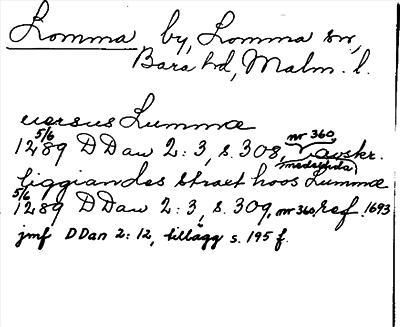 Lomma by, Lomma sn,
Bara hd, Malm. l.
versus Lummæ
5/6 1289 DDan 2:3, s. 308, nr 360, avskr.
liggiandes straet hoos Lummæ
5/6 1289 DDan 2:3, s. 309, nr 360, ref. 1693
jmf DDan 2:12, tillägg s. 195 f.